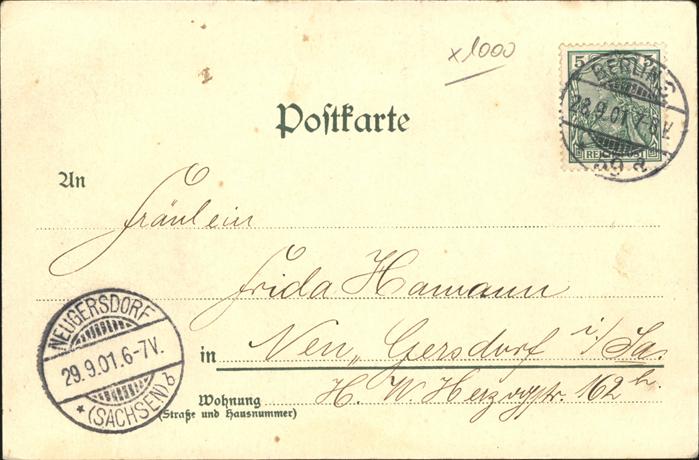 x1000
5 5
BERLIN
28.9.01.7-8V.
REICHSPOST
Postkarte
An
Fräulein
Frida Hamann
in Neu-Gersdorf i/Sa.
H. W. Herzogstr. 162 b.
Wohnung
(Straße und Hausnummer)
NEUGERSDORF
29.9.01.6-7V.
* (SACHSEN) b